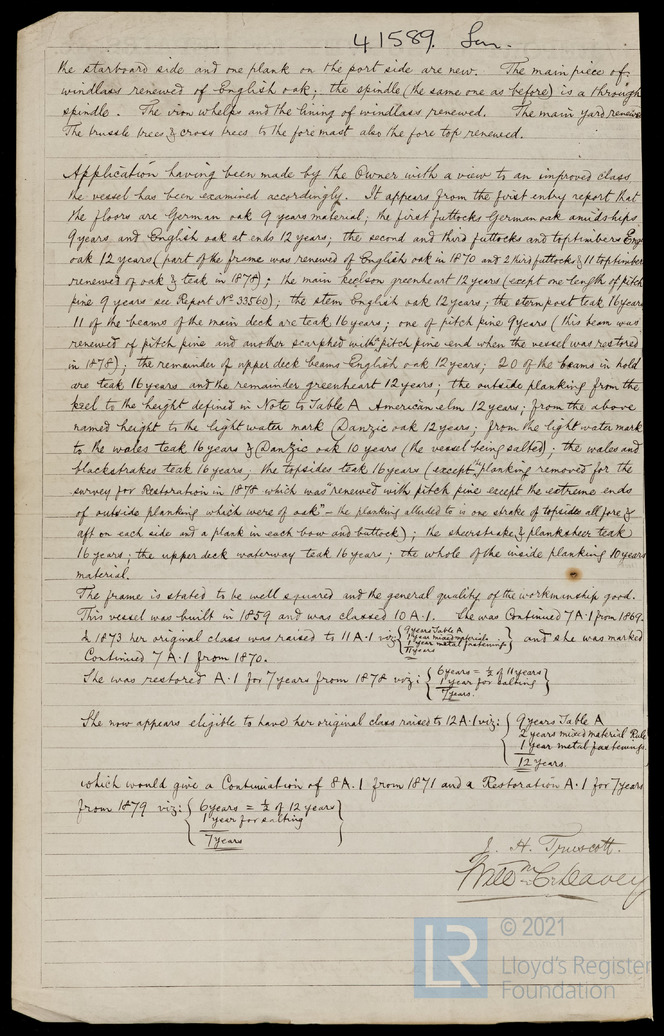 41589. Lon.
the starboard side and one plank on the port side are new. The main piece of
windlass renewed of English oak; the spindle (the same one as before) is a through
spindle. The iron whelps and the lining of windlass renewed. The main yard renewed
The trussle trees & cross trees to the foremast also the fore top renewed.
Application having been made by the Owner with a view to an improved class
the vessel has been examined accordingly. It appears from the first entry report that
the floors are German oak 9 years material; the first futtocks German oak amidships
9 years and English oak at ends 12 years; the second and third futtocks and toptimbers Eng
oak 12 years (part of the frame was renewed of English oak in 1870 and 2 third futtocks & 11 toptimbers
renewed of oak & teak in 1878); the main keelson greenheart 12 years (except one length of pitch
pine 9 years see Report No. 33560); the stem English oak 12 years; the sternpost teak 16 years
11 of the beams of the main deck are teak 16 years; one of pitch pine 9 years (this beam was
renewed of pitch pine and another scarphed with pitch pine end when the vessel was restored
in 1878); the remainder of upper deck beams English oak 12 years; 20 of the beams in hold
are teak 16 years and the remainder greenheart 12 years; the outside planking from the
keel to the height defined in Note to Table A American elm 12 years; from the above
named height to the light water mark Danzic oak 12 years; from the light water mark
to the wales teak 16 years & Danzic oak 10 years (the vessel being salted); the wales and
blackstrakes teak 16 years; the topsides teak 16 years (except "planking removed for the
survey for Restoration in 1878 which was "renewed with pitch pine except the extreme ends
of outside planking which were of oak" – the planking alluded to is one strake of topsides all fore &
aft on each side and a plank in each bow and buttock); the sheerstrake & planksheer teak
16 years; the upper deck waterway teak 16 years; the whole of the inside planking 10 years
material.
The frame is stated to be well squared and the general quality of the workmanship good.
This vessel was built in 1859 and was classed 10 A.1. She was Continued 7 A.1 from 1869.
In 1873 her original class was raised to 11 A.1 viz: { 9 years Table A
1 year mixed materials
1 year metal fastenings
11 years } and she was marked
Continued 7 A.1 from 1870.
She was restored A.1 for 7 years from 1878 viz: { 6 years = ½ of 11 years
1 year for salting
7 years. }
She now appears eligible to have her original class raised to 12 A.1 viz: { 9 years Table A
2 years mixed material Rule
1 year metal fastenings.
12 years.
which would give a Continuation of 8 A.1 from 1871 and a Restoration A.1 for 7 years
from 1879 viz: { 6 years = ½ of 12 years
1 year for salting
7 years }
J. H. Truscott.
LR
© 2021
Lloyd's Register
Foundation